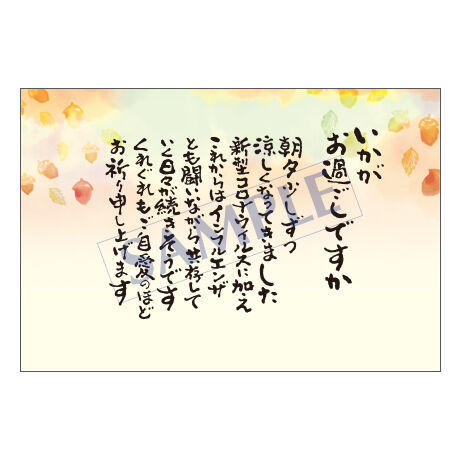 いかが
お過ごしですか
朝夕少しずつ
涼しくなってきました
新型コロナウイルスに加え
これからはインフルエンザ
とも闘いながら共存して
いく日々が続きそうです
くれぐれもご自愛のほど
お祈り申し上げます
SAMPLE